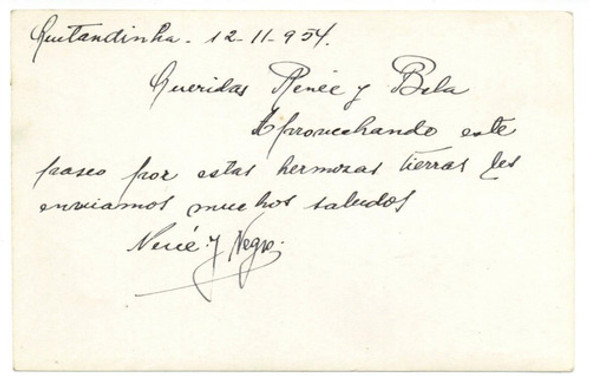 Quitandinha - 12-11-954.
Queridas Renée y Bela
Aprovechando este
paseo por estas hermozas tierras les
enviamos muchos saludos
Nené y Negro.